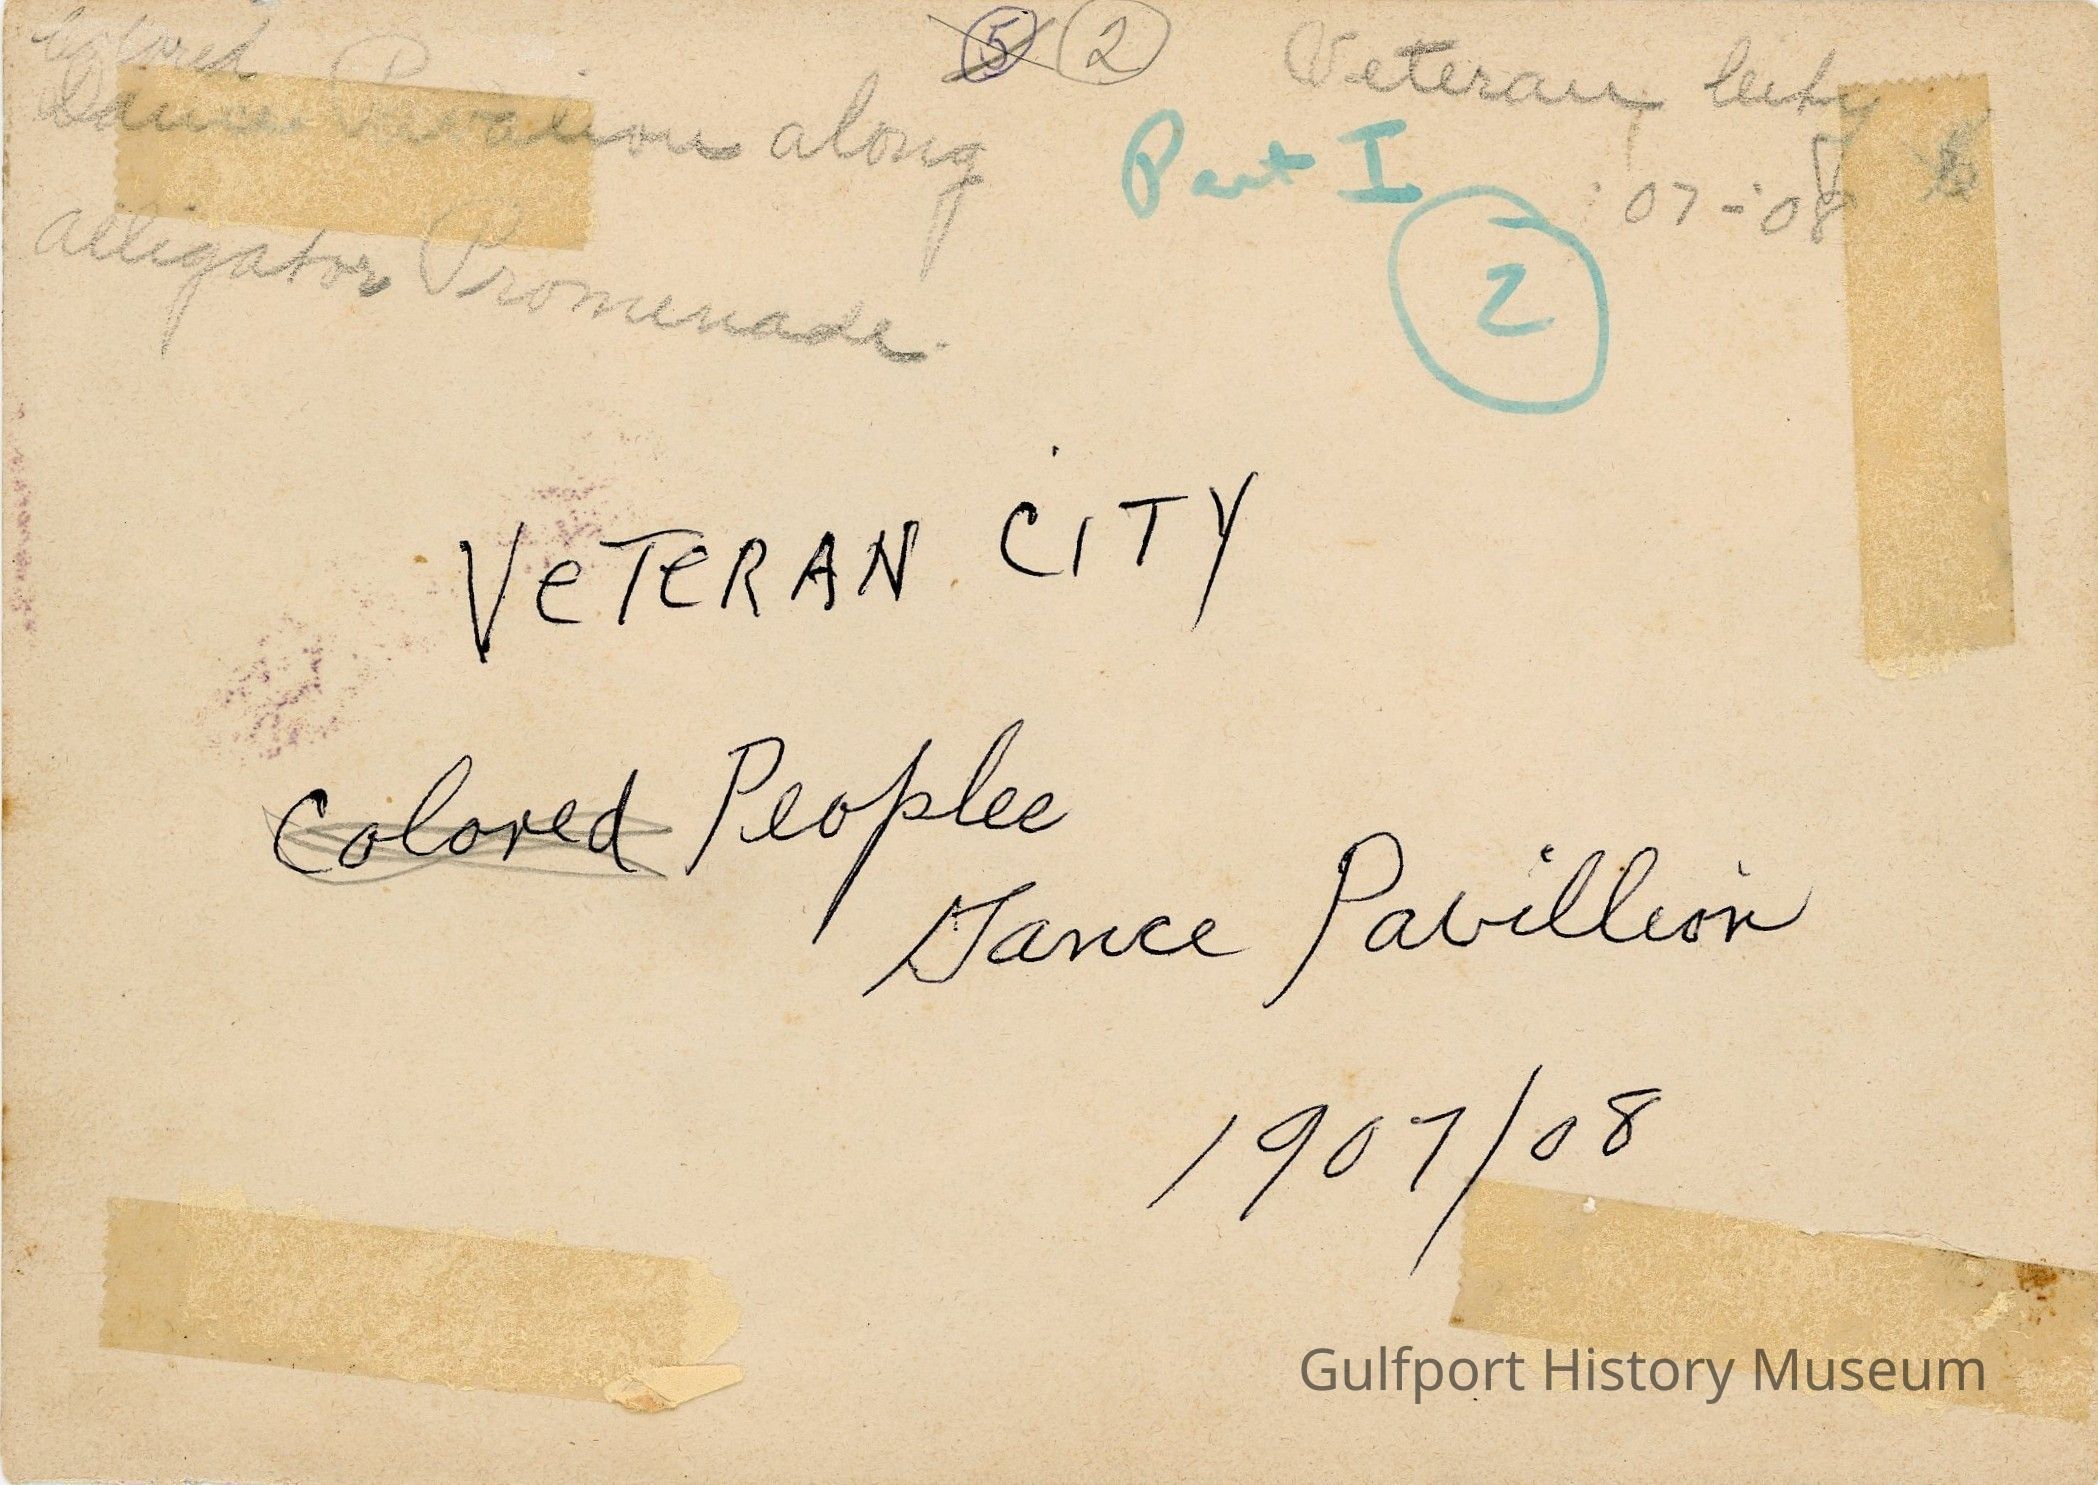 Colored
Dance Pavalion along
alligator Promenade.
5 2
Veteran City
Part I
'07-'08
2
VETERAN CITY
Colored Peoplee
Dance Pavillion
1907/08
Gulfport History Museum